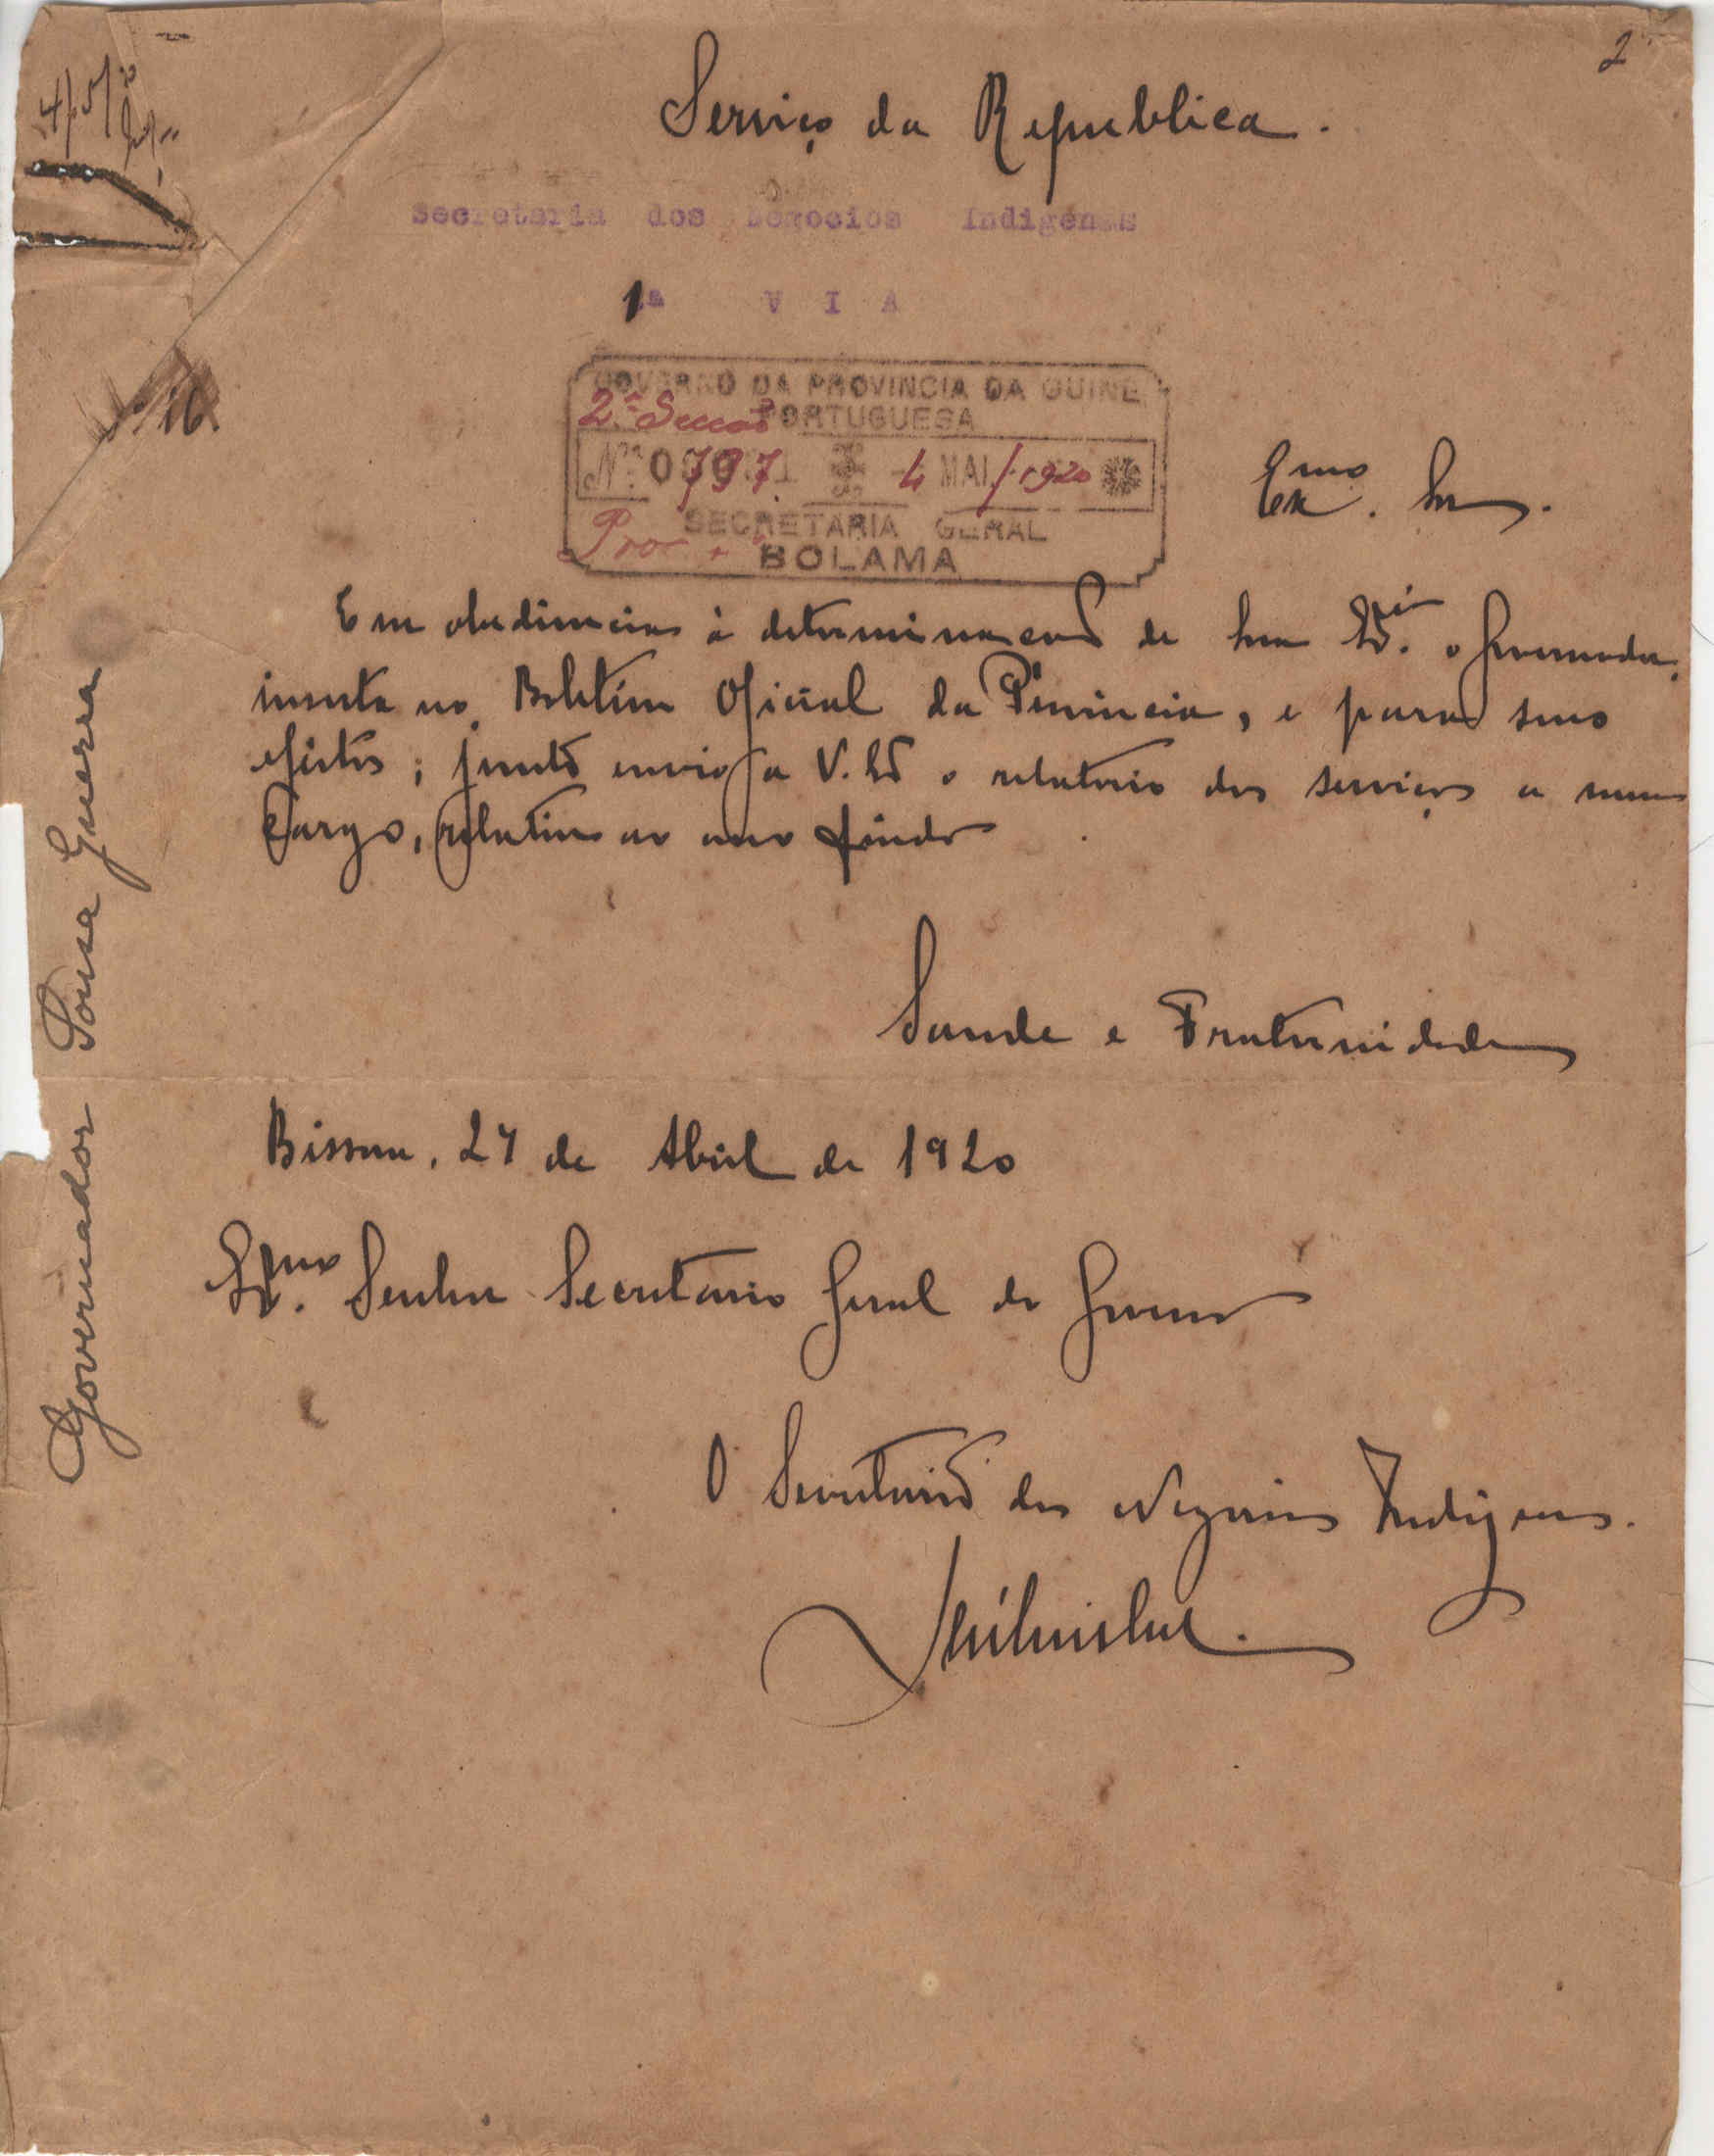 2
4/5/20
Serviço da Republica.
Secretaria dos Negocios Indigenas
1ª VIA
Nº 16.
GOVERNO DA PROVINCIA DA GUINÉ
2.ª Secção PORTUGUESA
Nº 797 4 MAI/1920
SECRETARIA GERAL
Proc.
BOLAMA
Exmo. Snr.
Em obediencia à determinação de Sua Exia. o Governador,
inserta no Boletim Oficial da Provincia, e para seus
efeitos; junto envio a V. Ex o relatorio dos serviços a meu
Cargo, relativo ao ano findo
Saude e Fraternidade
Bissau, 27 de Abril de 1920
Exmo. Senhor Secretario Geral do Governo
O Secretario dos Negocios Indigenas.
Governador Sousa Guerra